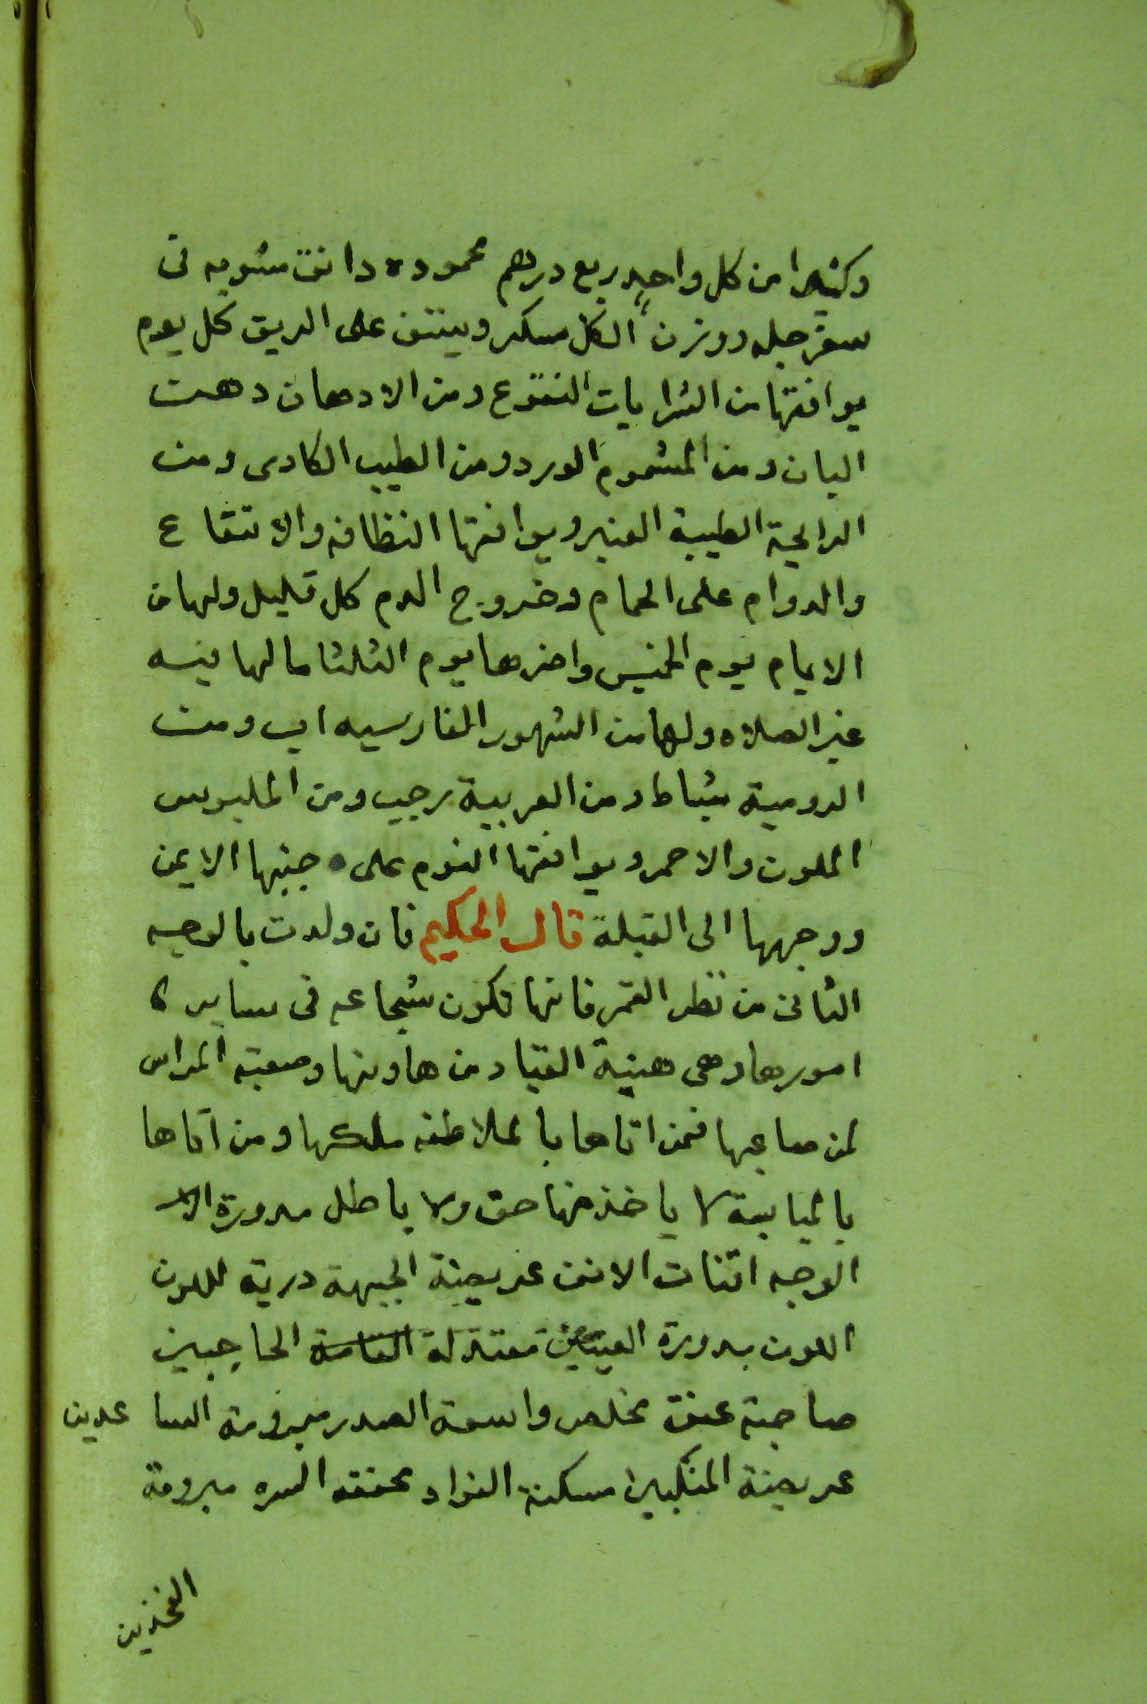 وكثيرا من كل واحد ربع درهم محموده دانق مشويه فى
سفرجله ووزن الكل سكر ويستف على الريق كل يوم
يوافقها من الشرابات النقوع ومن الادهان دهن
البان ومن المشموم الورد ومن الطيب الكادى ومن
الرايحة الطيبة العنبر ويوافقها النظافه والانتقاع
والدوام على الحمام وخروج الدم كل قليل ولها من
الايام يوم الخميس واخرها يوم الثلثا ما لها فيه
غير الصلاه ولها من الشهور الفارسيه اب ومن
الرومية شباط ومن العربية رجب ومن الملبوس
الملون والاحمر ويوافقها النوم على جنبها الايمن
ووجهها الى القبلة قال الحكيم فان ولدت بالوجه
الثانى من نظر القمر فانها تكون شجاعه فى ساير
امورها وهى هينة القياد من هاونها وصعبة المراس
لمن صاعبها فمن اتاها بالملاطفه ملكها ومن اتاها
لا ياخذ منها حق ولا باطل مدورة
الوجه الانف عريضة الجبهة درية اللون
اللون مدورة العينين معتدلة القامة الحاجبين
صاحبة عنق مخلص واسعة الصدر مبرومة الساعدين
عريضة المنكبين الفواد محققه السره مبرومة
الفخذين